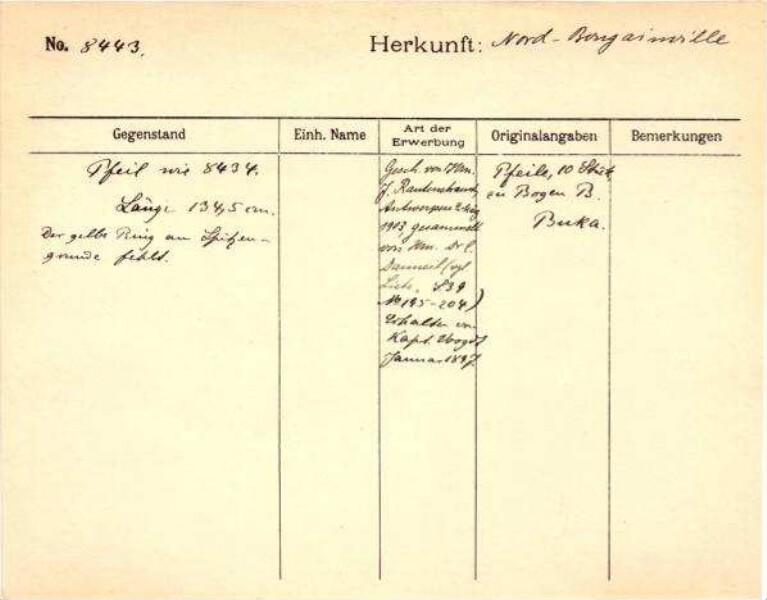 No. 8443.
Herkunft: Nord-Bougainville
Gegenstand
Einh. Name
Art der Erwerbung
Originalangaben
Bemerkungen
Pfeil wie 8434.
Länge 134,5 cm.
Der gelbe Ring am Spitzen-
grunde fehlt.
Gesch. von Hrn.
J. Rautenstrauch,
Antwerpen
1903, gesammelt
von Hrn. Dr C.
Danneil (vgl
Liste, 839
No 195-204)
Erhalten von
Kapt. Voogdt
Januar 1897.
Pfeile, 10 Stück
zu Bogen B.
Buka.